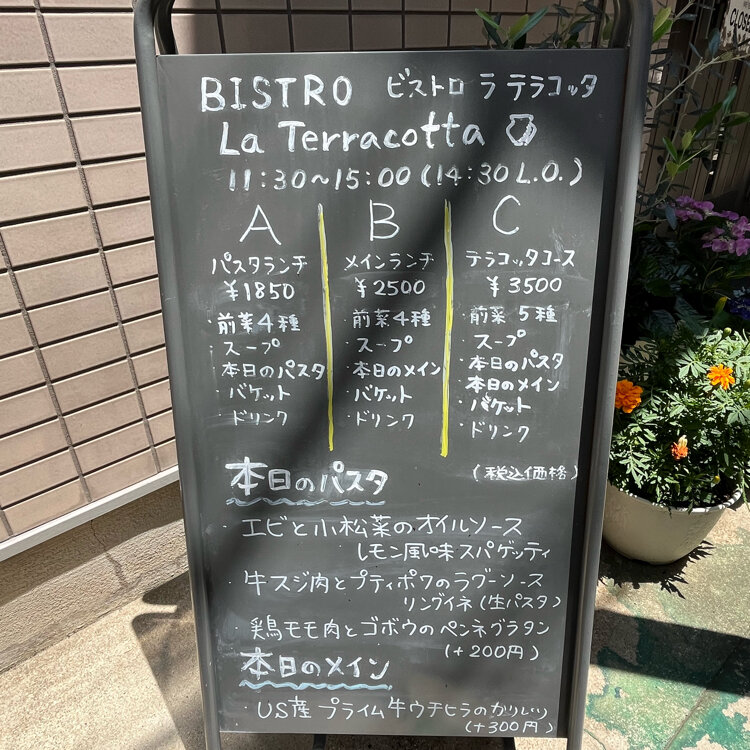 BISTRO ビストロ ラ テラコッタ
La Terracotta
11:30〜15:00(14:30 L.O.)
A
パスタランチ
¥1850
・前菜4種
・スープ
・本日のパスタ
・バケット
・ドリンク
B
メインランチ
¥2500
・前菜4種
・スープ
・本日のメイン
・バケット
・ドリンク
C
テラコッタコース
¥3500
・前菜 5種
・スープ
・本日のパスタ
・本日のメイン
・バケット
・ドリンク
(税込価格)
本日のパスタ
・エビと小松菜のオイルソース
レモン風味スパゲッティ
・牛スジ肉とプティポワのラグーソース
リングイネ(生パスタ)
・鶏モモ肉とゴボウのペンネグラタン
(+200円)
本日のメイン
・US産 プライム牛ウチヒラのカツレツ
(+300円)